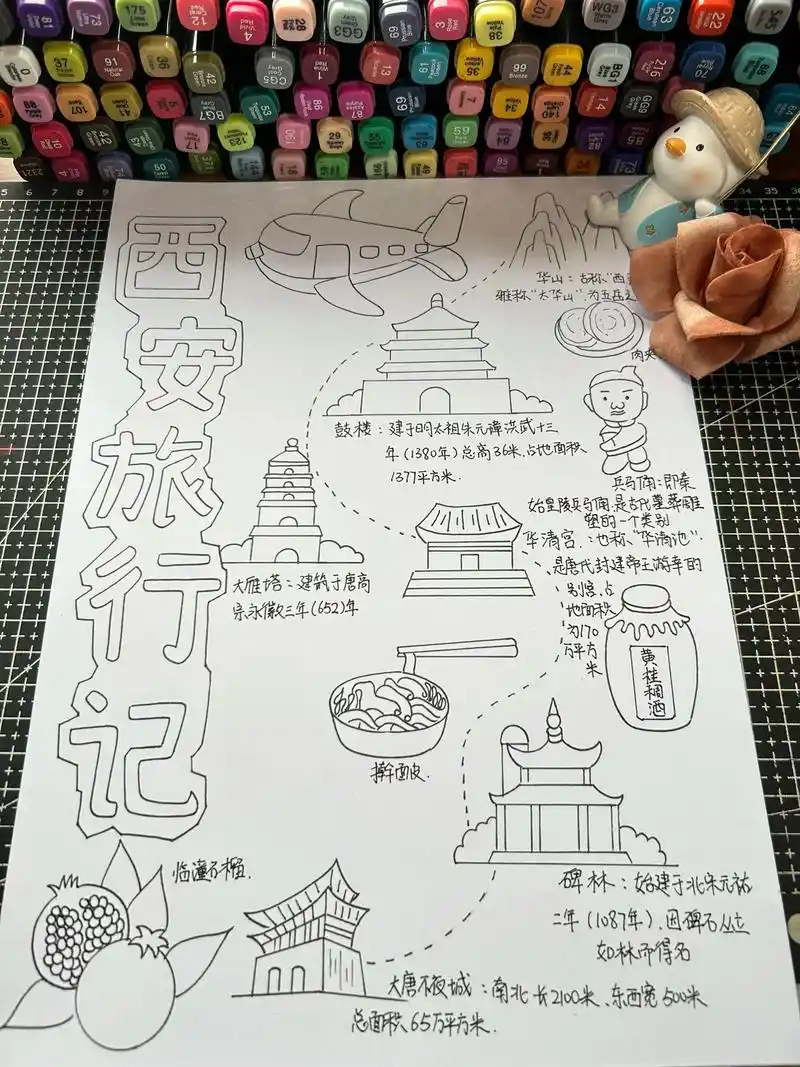 西安旅行记
华山：古称“西
雅称“太华山”.为五岳之
肉夹
鼓楼：建于明太祖朱元璋洪武十三
年(1380年)总高36米.占地面积
1377平方米.
兵马俑：即秦
始皇陵兵马俑.是古代墓葬雕
塑的一个类别
大雁塔：建筑于唐高
宗永徽三年(652)年
华清宫：也称“华清池”.
是唐代封建帝王游幸的
别宫.占
地面积
为170
万平方
米
黄桂稠酒
擀面皮.
碑林：始建于北宋元祐
二年(1087年).因碑石丛立
如林而得名
临潼石榴.
大唐不夜城：南北长2100米、东西宽500米
总面积65万平方米.